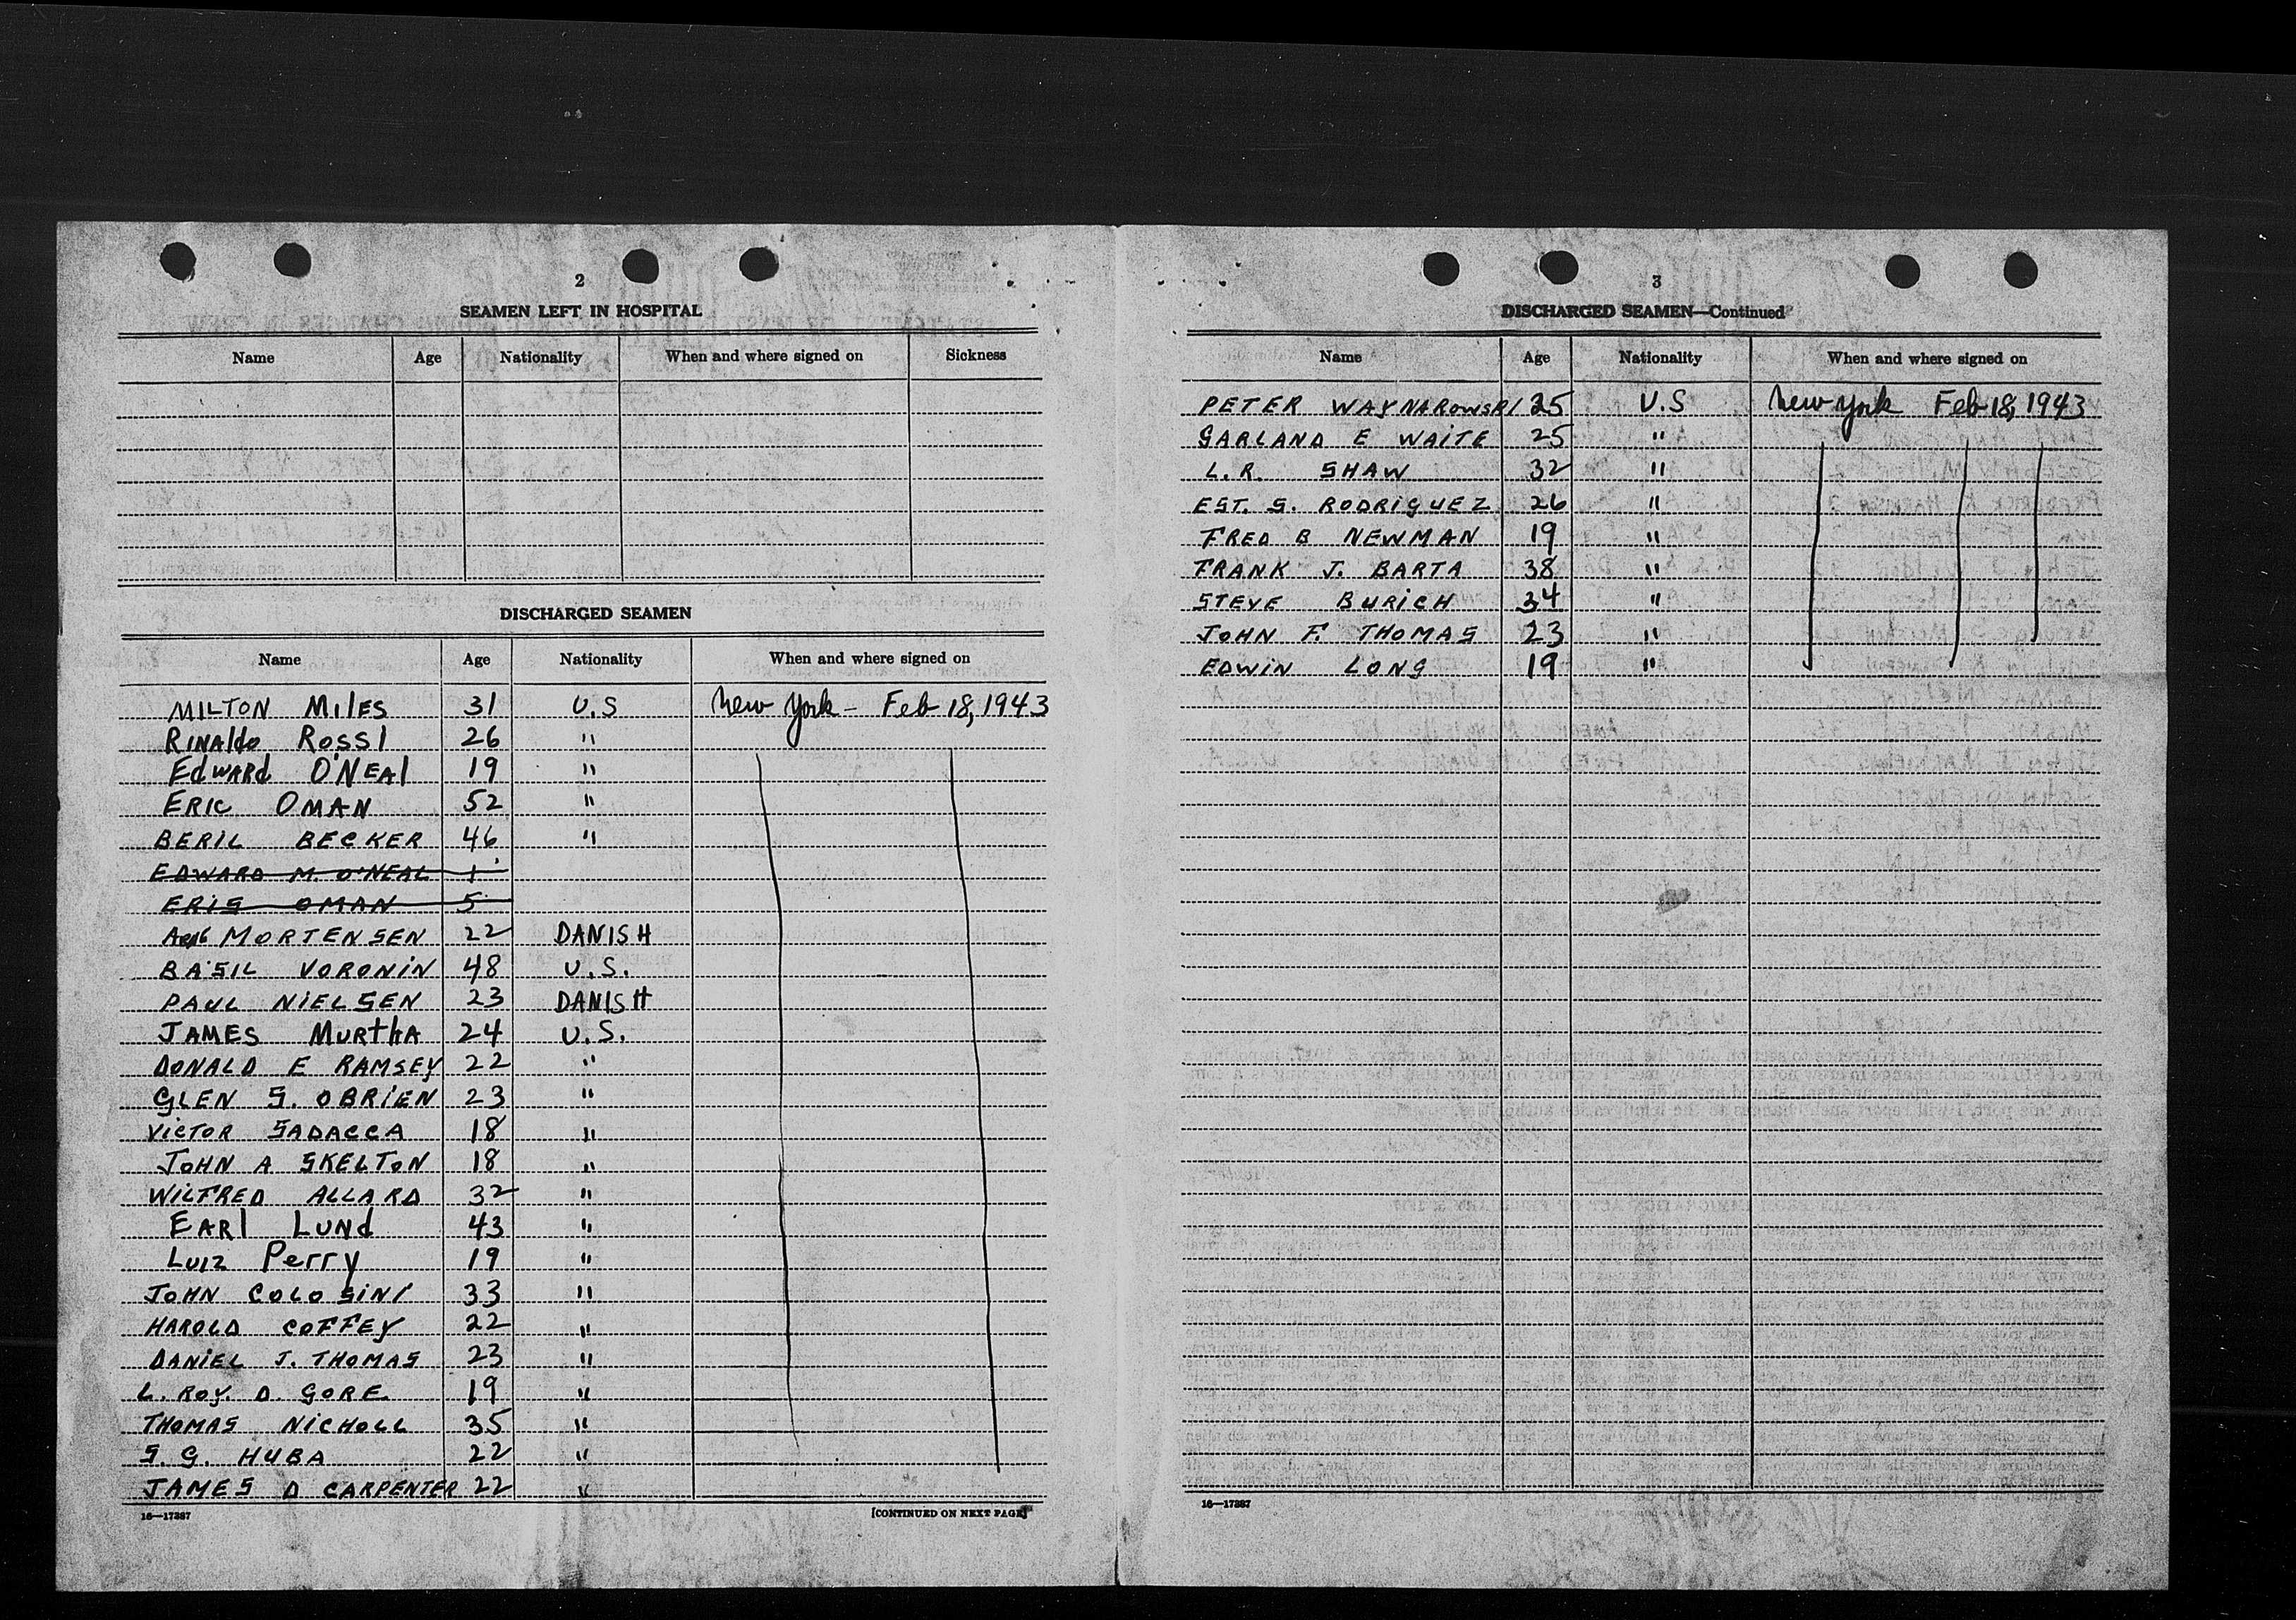 2
SEAMEN LEFT IN HOSPITAL
Name Age Nationality When and where signed on Sickness
DISCHARGED SEAMEN
Name Age Nationality When and where signed on
MILTON MIlES 31 U.S New York - Feb 18, 1943
RINAldo ROSSI 26 "
EdWARd O'NEAl 19 "
ERIC OMAN 52 "
BERIL BECKER 46 "
EDWARD M. O'NEAL 1
ERIS OMAN 5
MORTENSEN 22 DANISH
BASIL VORONIN 48 U.S.
PAUL NIELSEN 23 DANISH
JAMES MURthA 24 U.S.
DONALD E RAMSEY 22 "
GLEN S. OBRIEN 23 "
VICTOR SADACCA 18 "
JOHN A SKELTON 18 "
WILFRED ALLARD 32 "
EARl LUNd 43 "
LUIZ Perry 19 "
JOHN COLOSINI 33 "
HAROLD COFFEY 22 "
DANIEL J. THOMAS 23 "
L. ROY. D. GORE 19 "
THOMAS NICHOLL 35 "
S. G. HUBA 22 "
JAMES D CARPENTER 22 "
16—17387 [CONTINUED ON NEXT PAGE]
3
DISCHARGED SEAMEN—Continued
Name Age Nationality When and where signed on
PETER WAYNAROWSKI 25 U.S New York Feb 18, 1943
GARLAND E WAITE 25 "
L.R. SHAW 32 "
EST. S. RODRIGUEZ 26 "
FRED B NEWMAN 19 "
FRANK J. BARTA 38 "
STEVE BURICH 34 "
JOHN F. THOMAS 23 "
EDWIN LONG 19 "
16—17387